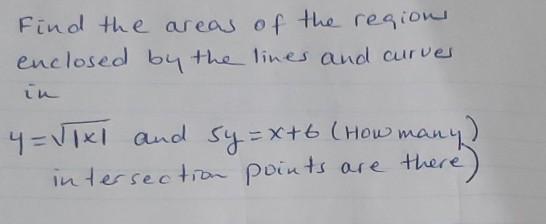 Find the areas of the regions
enclosed by the lines and curves
in
y = √|x| and 5y = x+6 (How many
intersection points are there)